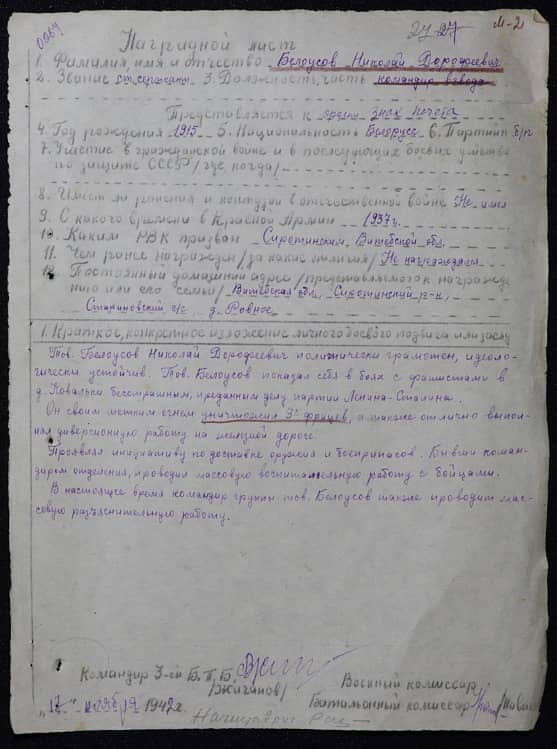 0264
27 27
М-2
Наградной лист
1. Фамилия, имя и отчество Белоусов Николай Дорофеевич
2. Звание ст. сержант 3. Должность, часть командир взвода
Представляется к ордену Знак почета
4. Год рождения 1915 5. Национальность Белорусс 6. Партийн б/п
7. Участие в гражданской войне и в последующих боевых действ.
по защите СССР /где, когда/
8. Имеет ли ранения и контузии в отечественной войне Не имел
9. С какого времени в Красной Армии 1937г.
10. Каким РВК призван Сиротинским, Витебской обл.
11. Чем ранее награжден /за какие отличия/ Не награждался
12. Постоянный домашний адрес /представляемого к награжде
нию или его семьи/ Витебская обл, Сиротинский р-н,
с/с д. Ровное
1. Краткое, конкретное изложение личного боевого подвига или заслу
Тов. Белоусов Николай Дорофеевич политически грамотен, идеоло-
гически устойчив. Тов. Белоусов показал себя в боях с фашистами в
д. Ковальки бесстрашным, преданным делу партии Ленина-Сталина.
Он своим метким огнем уничтожил 3х фрицев, а также отлично выпол-
нял диверсионную работу на железной дороге.
Проявлял инициативу по доставке оружия и боеприпасов. Бывши коман-
диром отделения, проводил массовую воспитательную работу с бойцами.
В настоящее время командир группы тов. Белоусов также проводит мас-
совую разъяснительную работу.
Командир 3-ей Б.П.Б. Военный комиссар
/Жиганов/ Батальонный комиссар
"17" ноября 1942г.